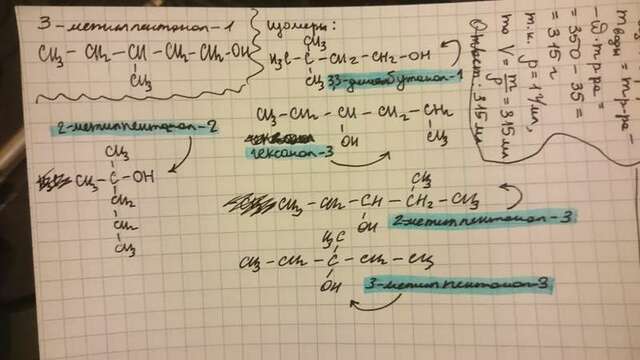 3-метилпентанол-1
CH₃ - CH₂ - CH - CH₂ - CH₂OH
CH₃
Изомеры:
CH₃
H₃C - C - CH₂ - CH₂ - OH
CH₃
3,3-диметилбутанол-1
CH₃ - CH₂ - CH - CH₂ - CH₂
OH
CH₃
гексанол-3
2-метилпентанол-2
CH₃
CH₃ - C - OH
CH₂
CH₂
CH₃
CH₃
CH₃ - CH₂ - CH - CH₂ - CH₃
OH
2-метилпентанол-3
H₃C
CH₃ - CH₂ - C - CH₂ - CH₃
OH
3-метилпентанол-3
m воды = m р-ра -
- W · m р-ра =
= 350 - 35 =
= 315 г
т.к. ρ = 1 г/мл,
то V = m/ρ = 315 мл
Ответ: 315 мл